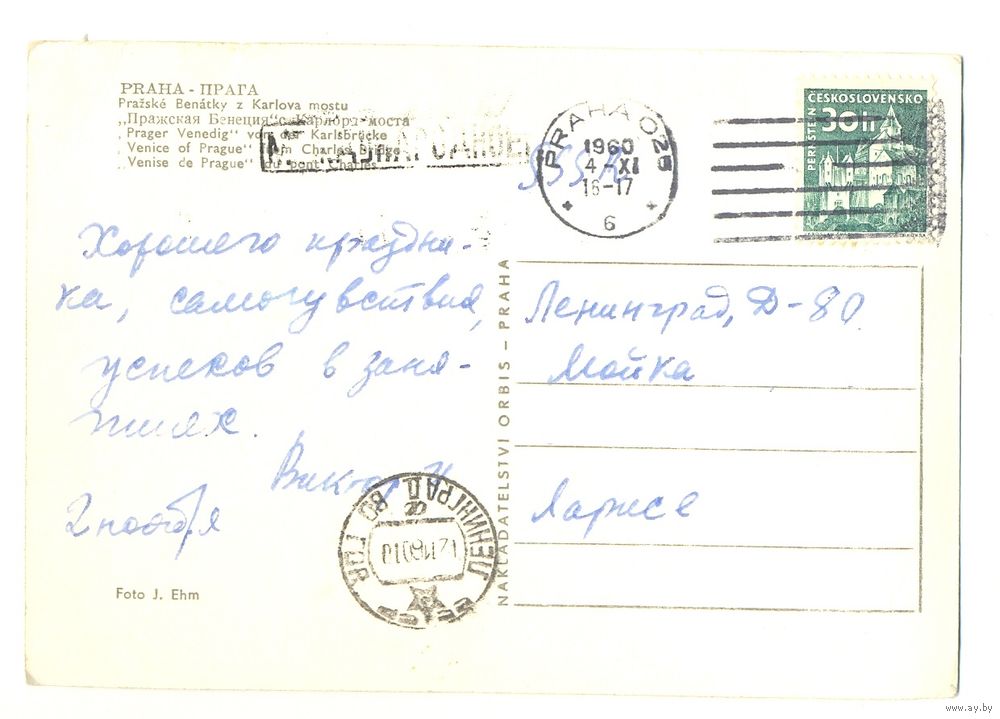 PRAHA - ПРАГА
Pražské Benátky z Karlova mostu
„Пражская Венеция“ с Карлова моста
„Prager Venedig“ von der Karlsbrücke
„Venice of Prague“ from Charles Bridge
„Venise de Prague“ du pont Charles
PRAHA 025
1960
4.-XI
16-17
6
ČESKOSLOVENSKO
30 h
PERNŠTEJN
SSSR
Хорошего праздни-
ка, самочувствия,
успехов в заня-
тиях.
Виктор
2 ноября
Ленинград, Д-80
Мойка
Ларисе
NAKLADATELSTVÍ ORBIS - PRAHA
ЛЕНИНГРАД 80
Foto J. Ehm
www.ay.by